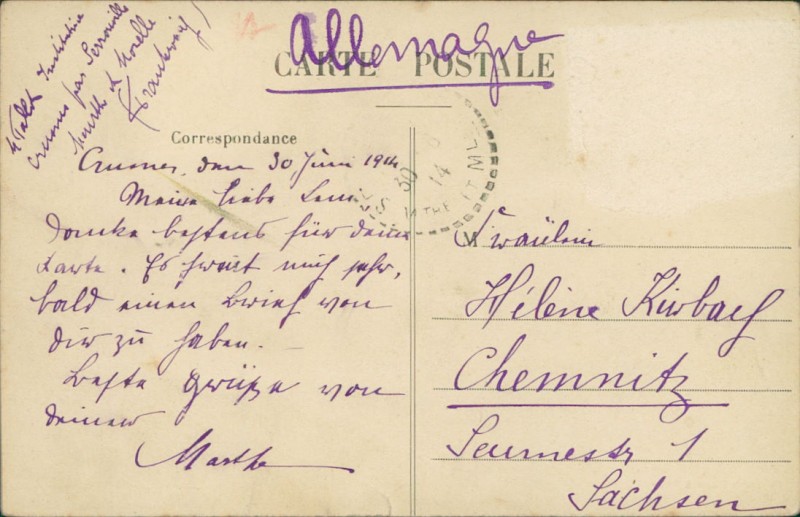 Allemagne
CARTE POSTALE
Institutrice
Crusnes par Serrouville
Meurthe et Moselle
(Frankreich)
Correspondance
Crusnes, den 30. Juni 1914
Meine liebe
danke bestens für deine
Karte. Es freut mich sehr,
bald einen Brief von
dir zu haben.
Beste Grüße von
deiner
Marthe
30
14
M
Fräulein
Hélène Kirbach
Chemnitz
Seumestr 1
Sachsen